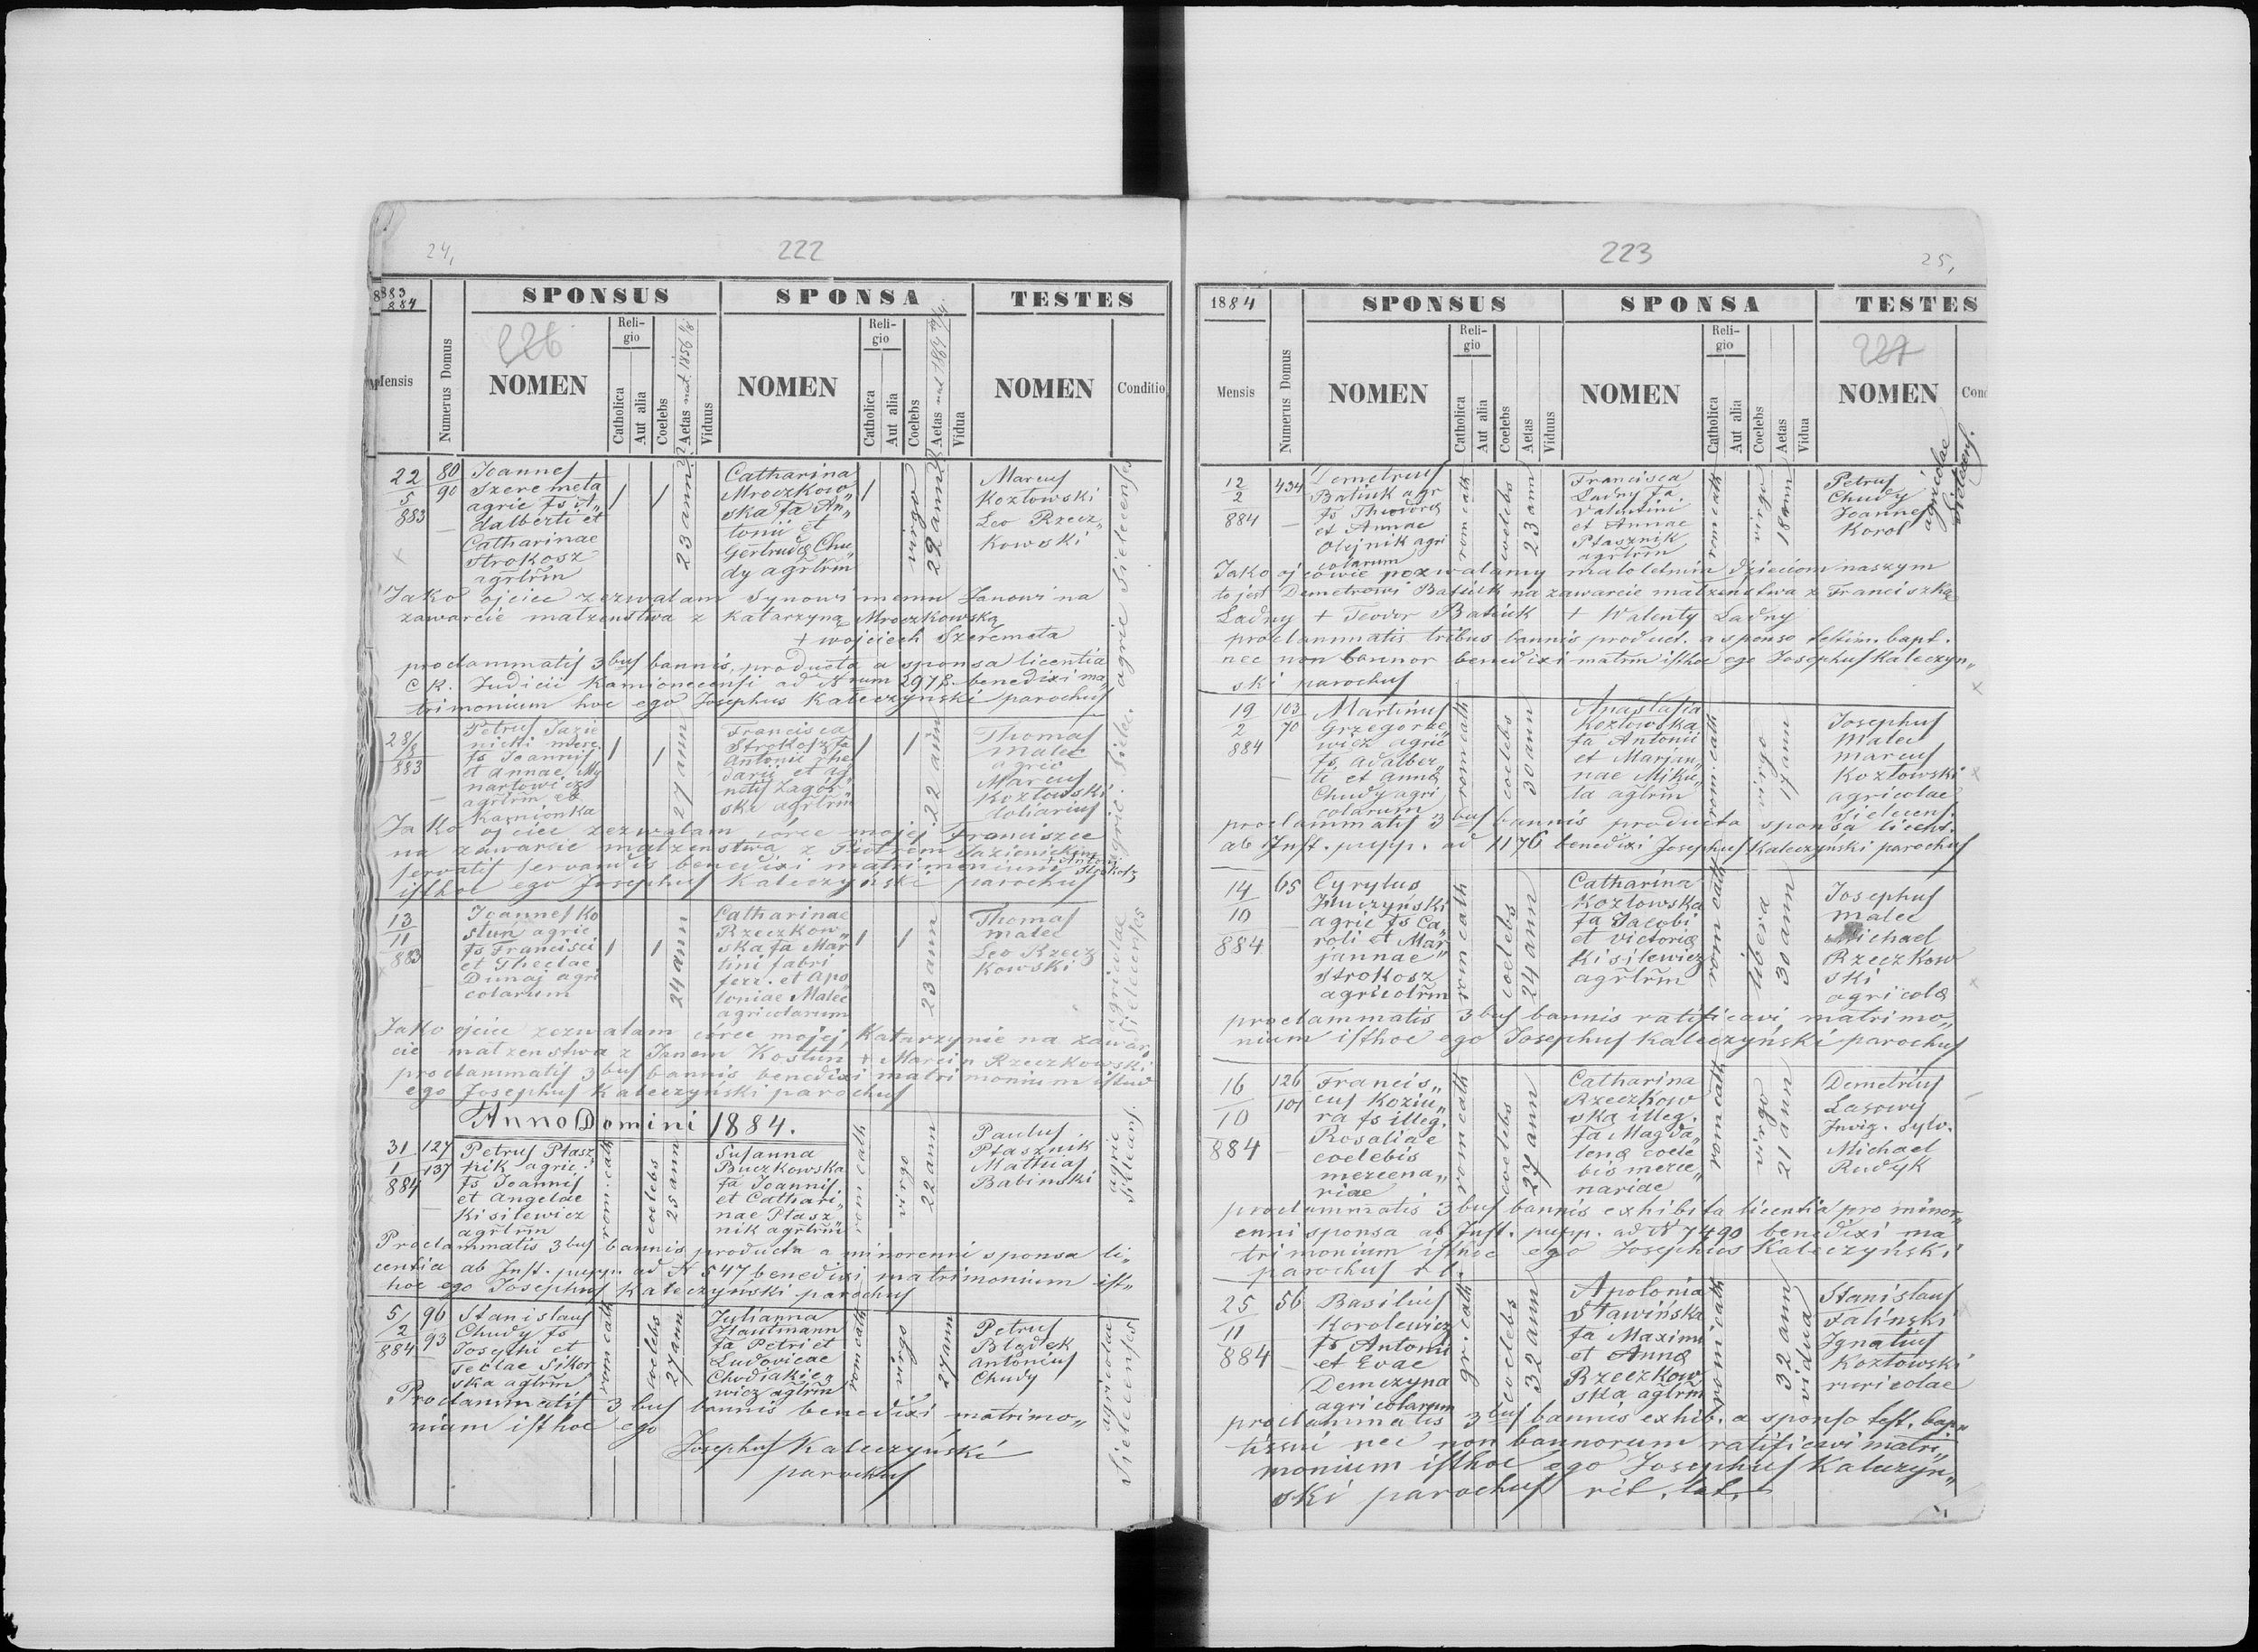 24,
222
883
884
SPONSUS
SPONSA
TESTES
Mensis
Numerus Domus
226
NOMEN
Religio
Catholica
Aut alia
Coelebs
Aetas nat. 1856
Viduus
NOMEN
Religio
Catholica
Aut alia
Coelebs
Aetas
Vidua
NOMEN
Conditio
22
5
883
80
90
Joannes
Szeremeta
agric fs A„
dalberti et
Catharinae
Strokosz
agrlrm
23 ann
Catharina
Mroczkow„
ska fa An„
tonii et
Gertrudæ Chu„
dy agrlrm
virgo
22 ann
Marcus
Kozłowski
Leo Rzecz„
kowski
agric Sielecenses
Jako ojciec zezwalam Synowi memu Janowi na
zawarcie matzenstwa z Katarzyną Mroczkowską
+ wojciech Szeremeta
proclammatis 3bus bannis, producta a sponsa licentia
C K. Judicii Kamionecensi ad Nrum 2978. benedixi ma„
trimonium hoc ego Josephus Kaleczyński parochus
28/
8
883
Petrus Jazie
nicki merc.
fs Joannis
et Annae My
nartowicz
agrlrm ex
Kamionka
27 ann
Francisca
Strokosz fa
Antonii The
darii et Ag
netis Zagór
ska agrlrm
22 ann
Thomas
Malec
agric
Marcus
Kozłowski
doliarius
agric. Sielec.
Jako ojciec zezwalam córce mojej Franciszce
na zawarcie matzenstwa z Piotrem Jazienickim
+ Antoni Strokosz
servatis servandis benedixi matrimonium
isthoc ego Josephus Kaleczyński parochus
13
11
883
Joannes Ko
stun agric
fs Francisci
et Theclae
Dunaj agri
colarum
24 ann
Catharinae
Rzeczkow„
ska fa Mar
tini fabri
ferr. et Apo
loniae Malec
agricolarum
23 ann
Thomas
Malec
Leo Rzecz
kowski
agricolae
Sielecenses
Jako ojciec zezwalam córce mojej Katarzynie na zawar„
cie matzenstwa z Janem Kostun + Marcin Rzeczkowski
proclammatis 3bus bannis benedixi matrimonium istud
ego Josephus Kaleczyński parochus
Anno Domini 1884.
31
1
884
127
137
Petrus Ptasz„
nik agric.
fs Joannis
et Angelae
Kisilewicz
agrlrm
rom. cath
coelebs
25 ann
Susanna
Buczkowska
fa Joannis
et Cathari„
nae Ptasz„
nik agrlrm
rom cath
virgo
22 ann
Paulus
Ptasznik
Mathias
Babinski
agric
Sielecens.
Proclammatis 3bus bannis producta a minorenni sponsa li„
centia ab Inst. pupp. ad N 547 benedixi matrimonium ist„
hoc ego Josephus Kaleczyński parochus
5/
2
884
96
93
Stanislaus
Chudy fs
Josephi et
Teclae Sikor
ska agrlrm
rom cath
coelebs
27 ann
Julianna
Hautmann
fa Petri et
Ludovicae
Chodiakie„
wicz agrlrm
rom cath
virgo
27 ann
Petrus
Blądek
Antonius
Chudy
agricolae
Sielecenses
Proclammatis 3bus bannis benedixi matrimo„
nium isthoc ego
Josephus Kaleczyński
parochus
223
25,
1884
SPONSUS
SPONSA
TESTES
Mensis
Numerus Domus
NOMEN
Religio
Catholica
Aut alia
Coelebs
Aetas
Viduus
NOMEN
Religio
Catholica
Aut alia
Coelebs
Aetas
Vidua
227
NOMEN
Con
12
2
884
434
Demetrius
Batiuk agr
fs Theodoræ
et Annae
Olejnik agri
colarum
rom cath
coelebs
23 ann
Francisca
Ladny fa
Valentini
et Annae
Ptasznik
agrlrm
rom cath
virgo
18 ann
Petrus
Chudy
Joannes
Korol
agricolae
Sielecens.
Jako ojcowie pozwalamy matoletnim dzieciom naszym
to jest Demetrowi Batiuk na zawarcie matzenstwa z Franciszką
Ladny + Teodor Batiuk + Walenty Ladny
proclammatis tribus bannis product. a sponso testim. bapt.
nec non bannor benedixi matrm isthoc ego Josephus Kaleczyn„
ski parochus
19
2
884
103
70
Martinus
Grzegorze„
wicz agric
fs Adalber„
ti et Annæ
Chudy agri
colarum
rom cath
coelebs
30 ann
Anastasia
Kozłowska
fa Antonii
et Marjan„
nae Miku„
la agrlrm
rom. cath
virgo
17 ann
Josephus
Malec
Marcus
Kozłowski
agricolae
Sielecens.
proclammatis 3bus bannis producta sponsa licent.
ab Inst. pupp. ad 1176 benedixi Josephus Kaleczynski parochus
14
10
884
65
Cyrylus
agric fs Ca„
roli et Mar„
jannae
Strokosz
agricolrm
rom cath
coelebs
24 ann
Catharina
Kozłowska
fa Jacobi
et Victoriæ
Kisilewicz
agrlrm
rom cath
libera
30 ann
Josephus
Malec
Michael
Rzeczkow
ski
agricolæ
proclammatis 3bus bannis ratificavi matrimo„
nium isthoc ego Josephus Kaleczyński parochus
16
10
884
126
101
Francis„
cus Koziu„
ra fs illeg.
Rosaliae
coelebis
mercena„
riae
rom cath
coelebs
27 ann
Catharina
Rzeczkow
ska illeg.
fa Magda„
lenæ coele
bis merce„
nariae
rom cath
virgo
21 ann
Demetrius
Lasowy
Inviz. sylv.
Michael
Rudyk
proclammatis 3bus bannis exhibita licentia pro minor„
enni sponsa ab Inst. pupp. ad N 7490 benedixi ma
trimonium isthoc ego Josephus Kaleczyński
parochus r l.
25
11
884
56
Basilius
Korolewicz
fs Antonii
et Evae
Demczyna
agricolarum
gr. cath
coelebs
32 ann
Apolonia
Sławińska
fa Maximi
et Annæ
Rzeczkow
ska agrlrm
rom cath
32 ann
vidua
Stanislaus
Falinski
Ignatius
Kozłowski
ruricolae
proclammatis 3bus bannis exhib. a sponso test. bap„
tismi nec non bannorum ratificavi matri„
monium isthoc ego Josephus Kaleczyn„
ski parochus rit. lat.